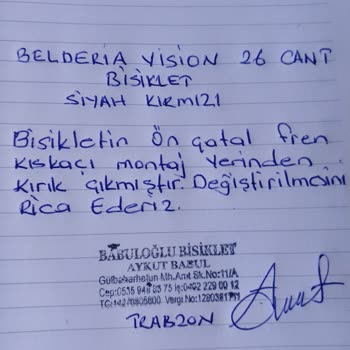 BELDERIA VISION 26 CANT
BİSİKLET
SİYAH KIRMIZI
Bisikletin Ön çatal fren
kıskaçı montaj yerinden
kırık çıkmıştır. Değiştirilmesini
Rica Ederiz.
BABULOĞLU BİSİKLET
AYKUT BABUL
Gülbaharhatun Mh. Anıt Sk. No:11/A
TRABZON